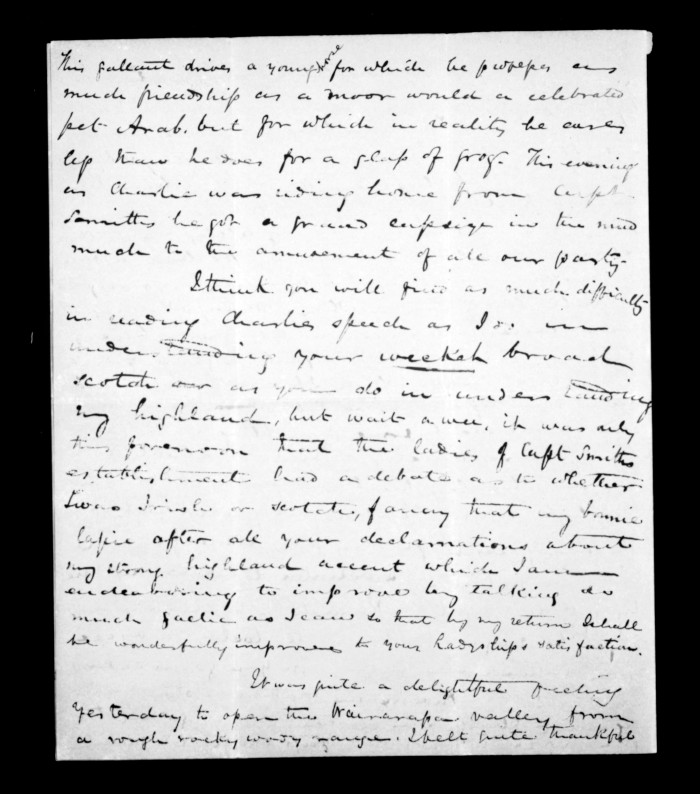 This gallant drives a young for which he professes as
much friendship as a moor would a celebrated
pet Arab, but for which in reality he cares
less than he does for a glass of grog. This evening
as Charlie was riding home from Capt
Smiths he got a grand capsize in the mud
much to the amusement of all our party.
I think you will find as much difficulty
in reading Charlies speech as I do in
understanding your broad
scotch or as you do in understanding
my highland, but wait a wee, it was only
this forenoon that the ladies of Capt Smiths
establishment had a debate as to whether
I was Irish or scotch, fancy that my bonnie
lassie after all your declarations about
my strong highland accent which I am
endeavoring to improve by talking as
much gaelic as I can so that by my return I shall
be wonderfully improved to your ladyship's satisfaction.
It was quite a delightful feeling
yesterday to open the Wairarapa valley from
a rough rocky woody range. I felt quite thankful